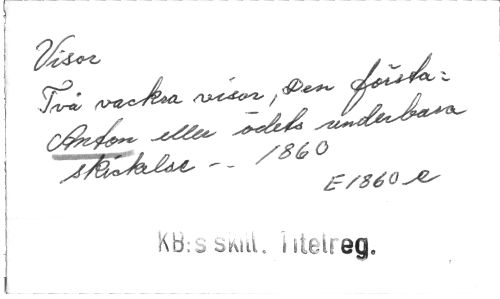 Visor
Två vackra visor, Den första:
Anton eller ödets underbara
skickelse -- 1860
E 1860 e
KB:s skill. Titelreg.